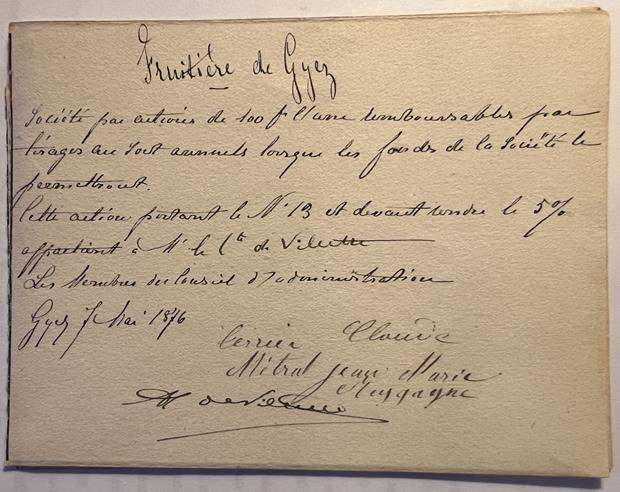 Fruitière de Gyez
Société par actions de 100 f l'une remboursables par
tirages au sort annuels lorsque les fonds de la Société le
permettront.
Cette action portant le N° 13 et devant rendre le 5%
appartient à Mr le Cte de Villette
Les Membres du Conseil d'administration
Gyez 7 Mai 1876
Claude
Métral Jean Marie